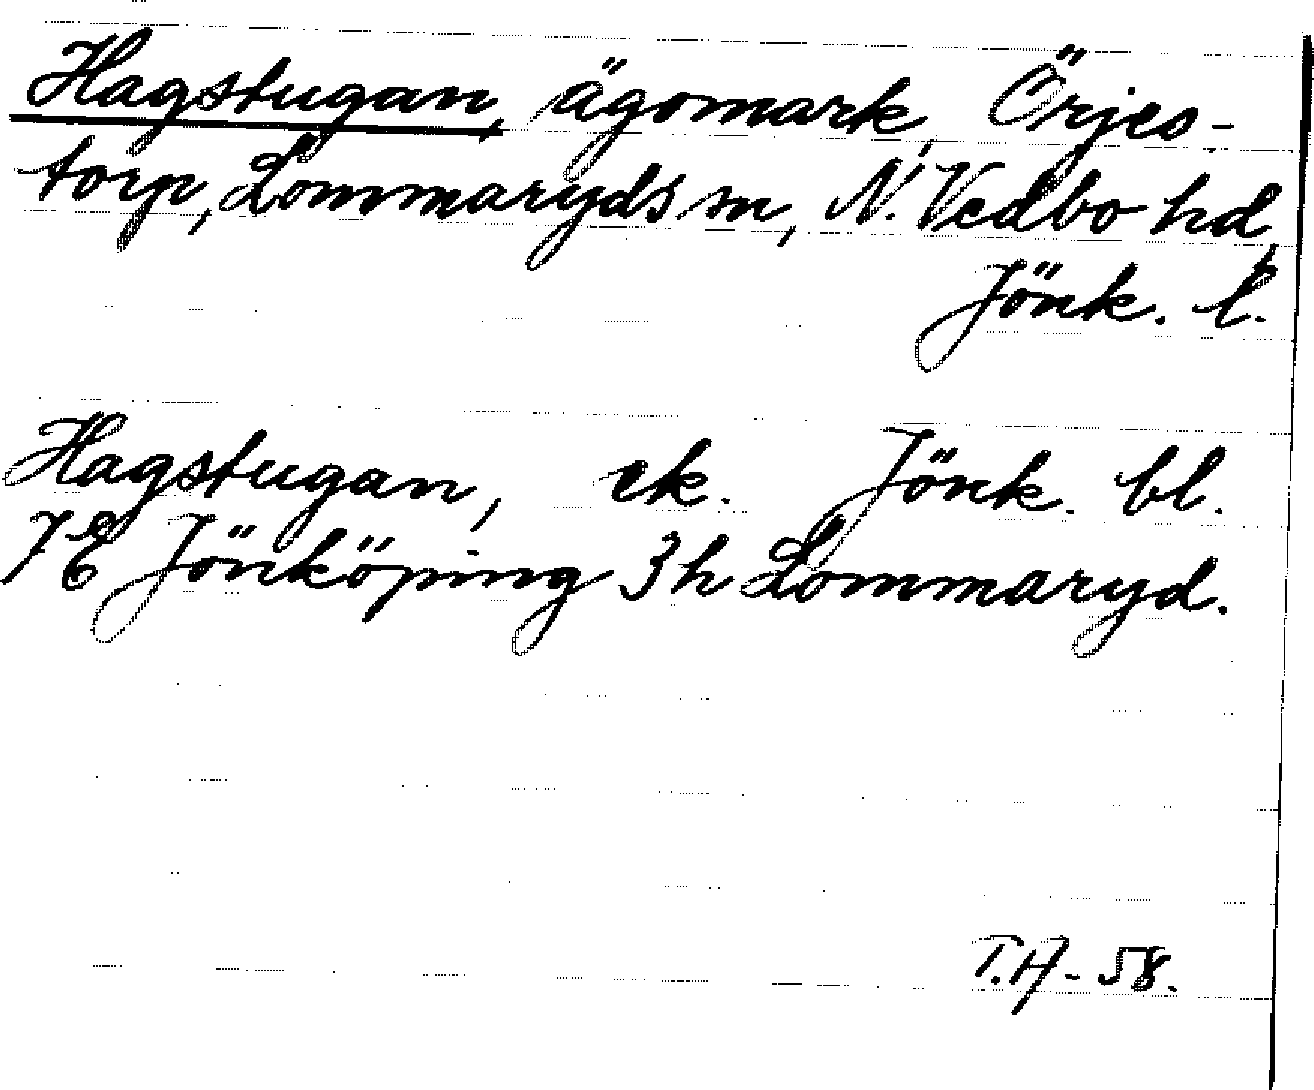 Hagstugan, ägomark, Örjes-
torp, Lommaryds sn, N. Vedbo hd,
Jönk. l.
Hagstugan, ek. Jönk. bl.
7E Jönköping 3h Lommaryd.
T.A-58.